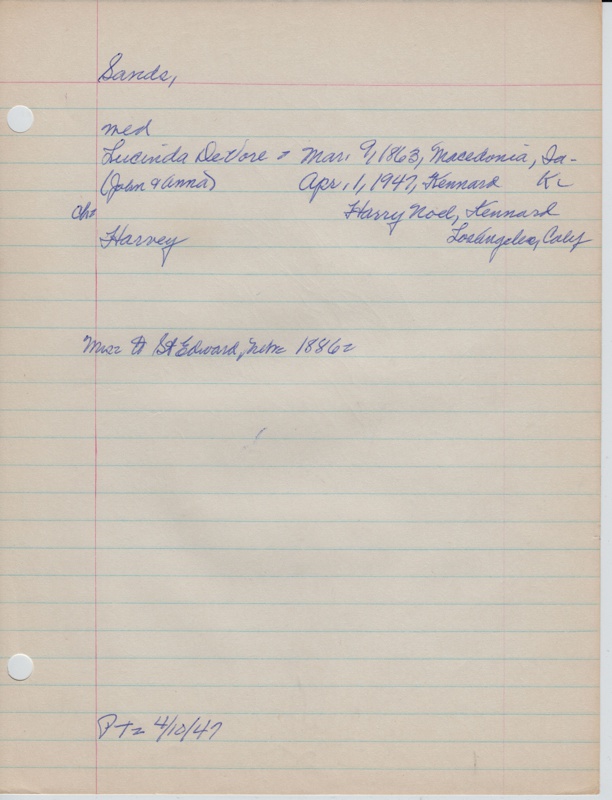 Sands,
med
Lucinda DeVore + Mar. 9, 1863, Macedonia, Ia-
(John & Anna) Apr. 1, 1947, Kennard K-
Ch+ Harry Noel, Kennard
Harvey Los Angeles, Calif
St Edward, Nebr 1886-
PT- 4/10/47